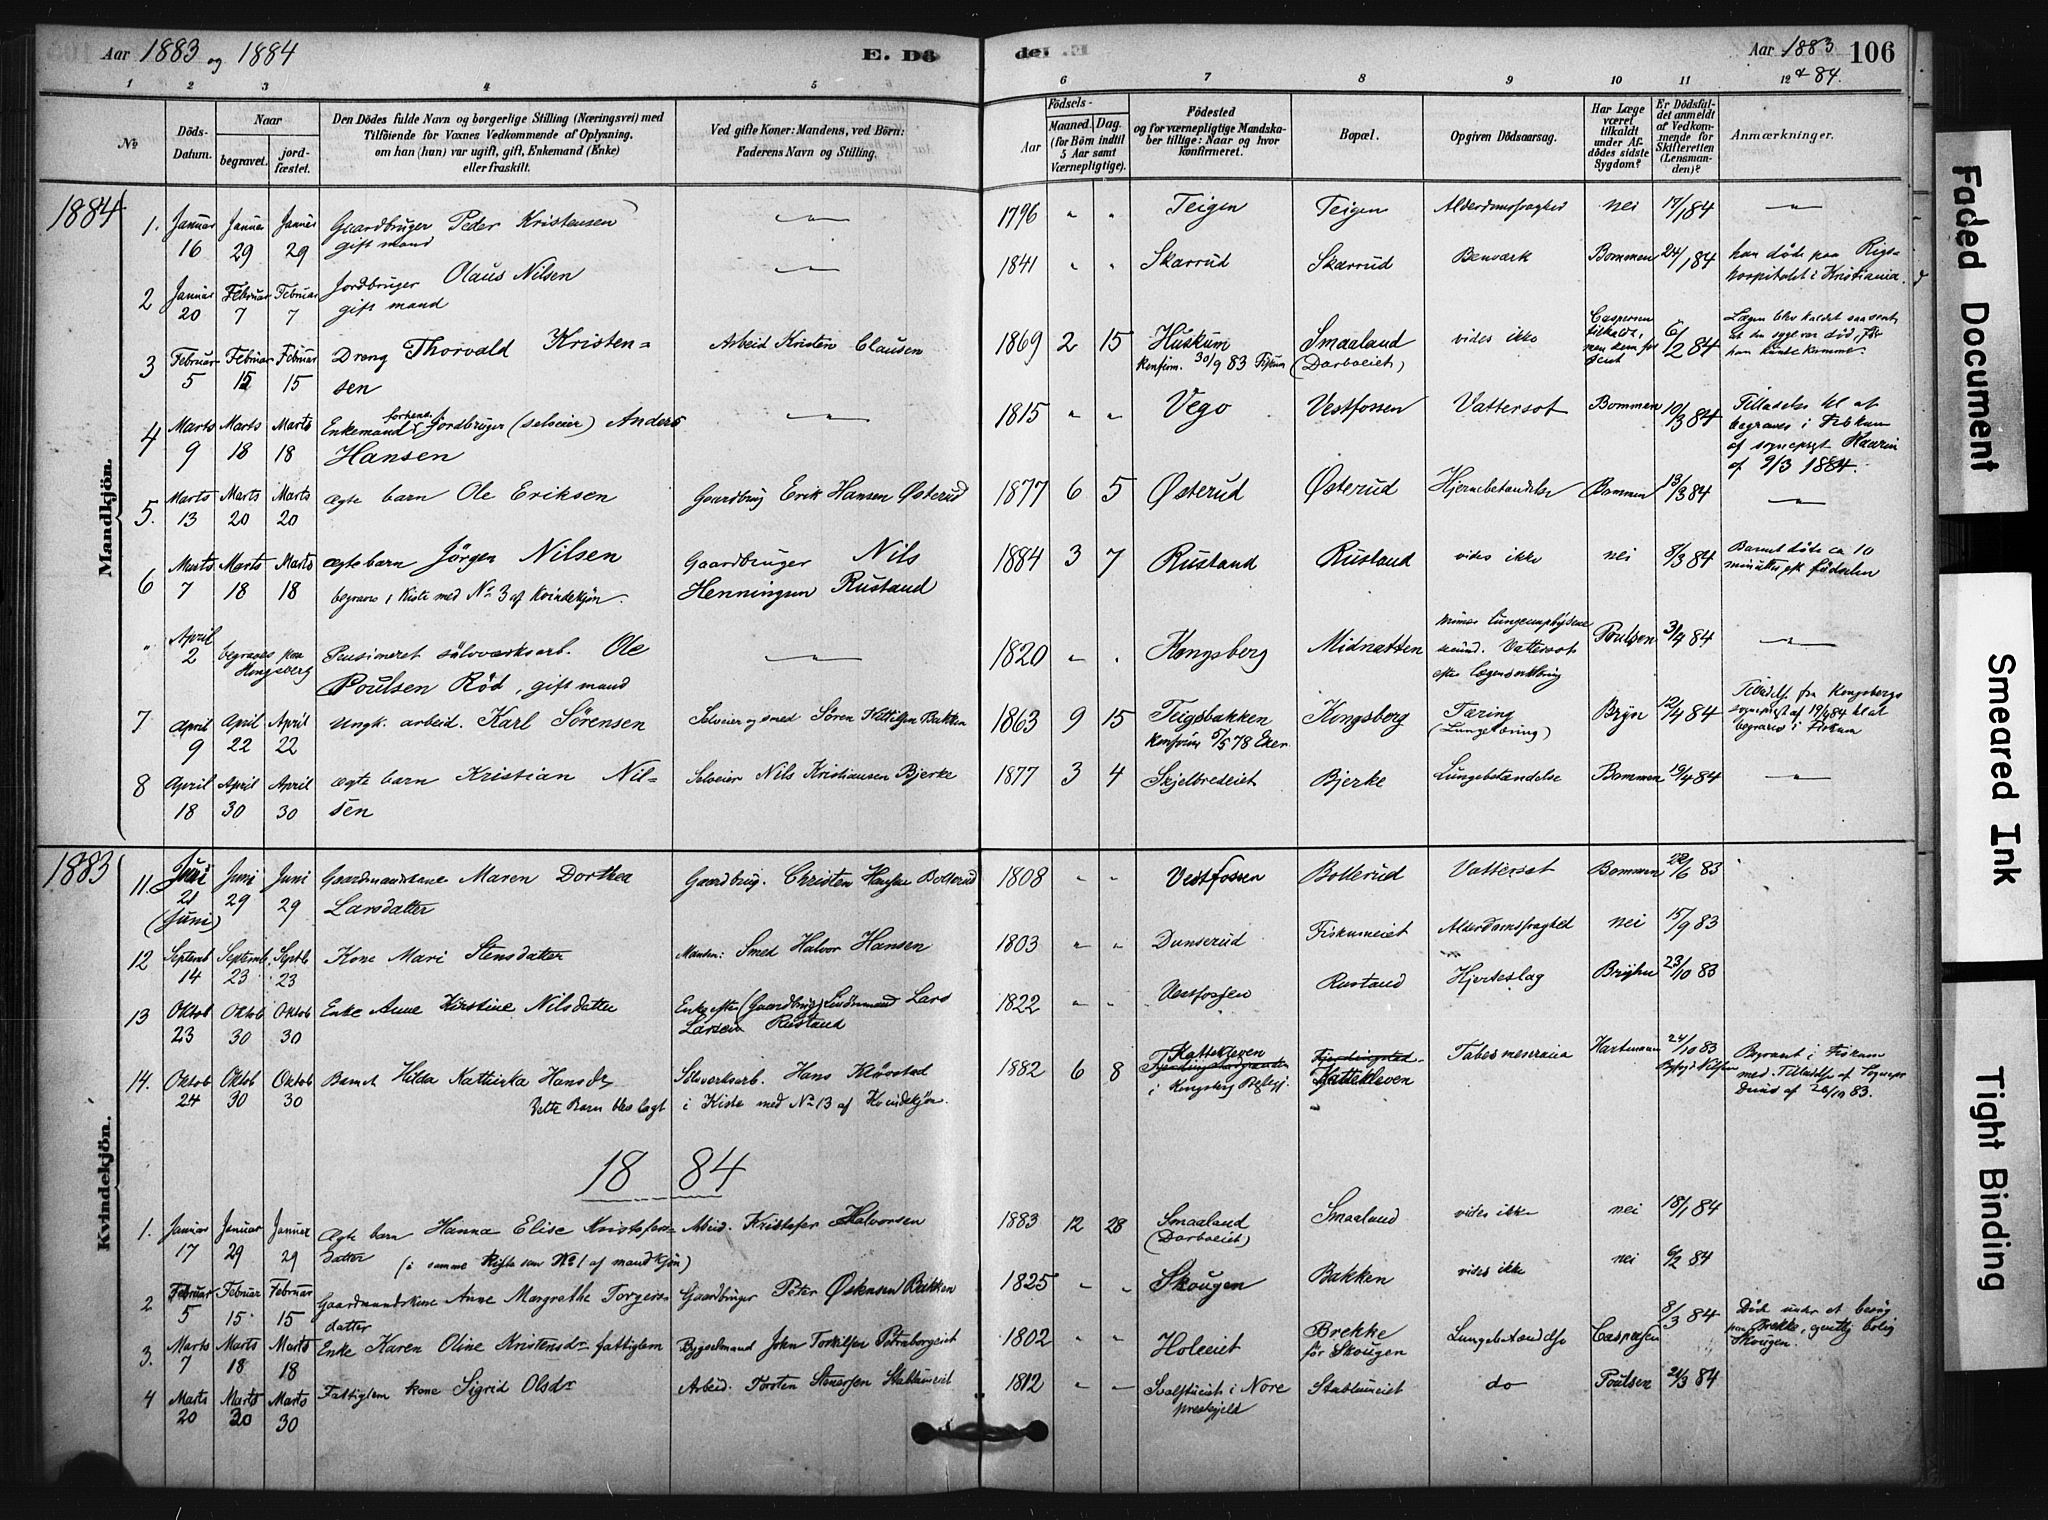 Aar 1883 og 1884
E. Dö
de.
Aar 1883 & 84.
106
1 2 3 4 5 6 7 8 9 10 11 12
No
Döds-Datum.
Naar
begravet.
jordfæstet.
Den Dödes fulde Navn og borgerlige Stilling (Næringsvei) med
Tilföiende for Voxnes Vedkommende af Oplysning,
om han (hun) var ugift, gift, Enkemand (Enke)
eller fraskilt.
Ved gifte Koner: Mandens, ved Börn:
Faderens Navn og Stilling.
Födsels-
Aar
Maaned. Dag.
(for Börn indtil
5 Aar samt
Værnepligtige).
Födested
og for værnepligtige Mandska-
ber tillige: Naar og hvor
konfirmeret.
Bopæl.
Opgiven Dödsaarsag.
Har Læge
været
tilkaldt
under Af-
dödes sidste
Sygdom?
Er Dödsfal-
det anmeldt
af Vedkom-
mende for
Skifteretten
(Lensman-
den)?
Anmærkninger.
Mandkjön.
1884
1. Januar 16 Janua 29 Januar 29 Gaardbruger Peder Kristensen gift mand — " — 1796 " " Teigen Teigen Alderdomssvaghed nei 17/1 84 — " —
2 Januar 20 Februar 7 Februar 7 Jordbruger Olaus Nilsen gift mand — " — 1841 " " Skarrud Skarrud Benværk Bommen 24/1 84 han døde paa Rigshospitalet i Kristiania.
3 Februar 5 Februar 15 Februar 15 Dreng Thorvald Kristensen Arbeid Kristen Clausen 1869 2 15 Huskum Konfirm. 30/9 83 Fiskum Smaaland (Darboeiet) vides ikke Caspersen tilkaldt, men kom for seent 6/2 84 Lægen blev kaldet saa sent at den syge var död, før han kunde komme.
4 Marts 9 Marts 18 Marts 18 Enkemand forhenv. Jordbruger (selveier) Anders Hansen — " — 1815 " " Vego Vestfossen Vattersot Bommen 10/3 84 Tilladelse til at begraves i Fiskum af sogneprest Kaarin af 9/3 1884.
5. Marts 13 Marts 20 Marts 20 ægte barn Ole Eriksen Gaardbrug Erik Hansen Østerud 1877 6 5 Østerud Østerud Hjernebetændelse Bommen 13/3 84 — " —
6 Marts 7 Marts 18 Marts 18 ægte barn Jörgen Nilsen begraves i Kiste med No 3 af Kvindekjön. Gaardbruger Nils Henningsen Rustand 1884 3 7 Rustand Rustand vides ikke nei 8/3 84 Barnet döde ca 10 minutter eft födselen
" April 2 begraves paa Kongsberg Pensioneret sölvværksarb. Ole Poulsen Röd, gift mand — " — 1820 " " Kongsberg Midnatten Vattersot efter Lægens erklæring Poulsen 3/4 84 — " —
7 April 9 April 22 April 22 ungk. arbeid. Karl Sörensen Selveier og smed Sören Kittilsen Bakken 1863 9 15 Teigsbakken Konfirm 5/5 78 Eker Kongsberg Tæring (Lungetæring) Bryn 12/4 84 Tilladelse fra Kongsbergs sogneprest af 19/4 84 til at begraves i Fiskum
8 April 18 April 30 April 30 ægte barn Kristian Nilsen Selveier Nils Kristiansen Bjerke 1877 3 4 Skjelbredeiet Bjerke Lungebetændelse Bommen 19/4 84 — " —
Kvindekjön.
1883
11. Juni 21 (Juni) Juni 29 Juni 29 Gaardmandskone Maren Dorthea Larsdatter Gaardbrug. Christen Hansen Bollerud 1808 " " Vestfossen Bollerud Vattersot Bommen 22/6 83 "
12 Septemb 14 Septemb. 23 Septb 23 Kone Mari Stensdatter Manden: Smed Halvor Hansen 1803 " " Dunserud Fiskumeiet Alderdomssvaghed nei 15/9 83
13 Oktob 23 Oktob 30 Oktob 30 Enke Anne Kirstine Nilsdatter Enke efter (Gaardbrug) Lars Larsen Rustand 1822 " " Vestfossen Rustand Hjerteslag Bryhn 23/10 83
14. Oktob 24 Oktob 30 Oktob 30 Barnet Hilda Kathinka Hansdr Dette Barn blev lagt Sölvverksarb. Hans Kløvstad i Kiste med No 13 af Kvindekjön. 1882 6 8 Katteleven i Kongsberg Kattekleven Tabes mesraica Hartmann 24/10 83 Begravet i Fiskum med Tilladelse af Sognepr af 26/10 83.
1884
1. Januar 17 Januar 29 Januar 29 Ægte barn Hanna Elise Kristofersdatter (i samme Kiste som No 1 af mandkjön) Arbeid. Kristofer Halvorsen 1883 12 28 Smaaland (Darboeiet) Smaaland vides ikke nei 18/1 84
2 Februar 5 Februar 15 Februar 15 Gaardmandskone Anne Margrethe Torgersdatter Gaardbruger Peter Østensen Bakken 1825 " " Skougen Bakken vides ikke nei 6/2 84
3. Marts 7 Marts 18 Marts 18 Enke Karen Oline Kristensdr fattiglem Bygselmand John Torkilsen Petersborgeiet 1802 " " Holeeiet Brekke för Skougen Lungebetændelse Caspersen 8/3 84 Döde under et besög paa Brekke, egentlig bolig Skougen.
4 Marts 20 Marts 30 Marts 30 Fattiglem kone Sigrid Olsdr Arbeid. Torsten Stenersen Stablumeiet 1812 " — i Nore prestegjeld Stablumeiet do Poulsen 21/3 84
Faded Document
Smeared Ink
Tight Binding